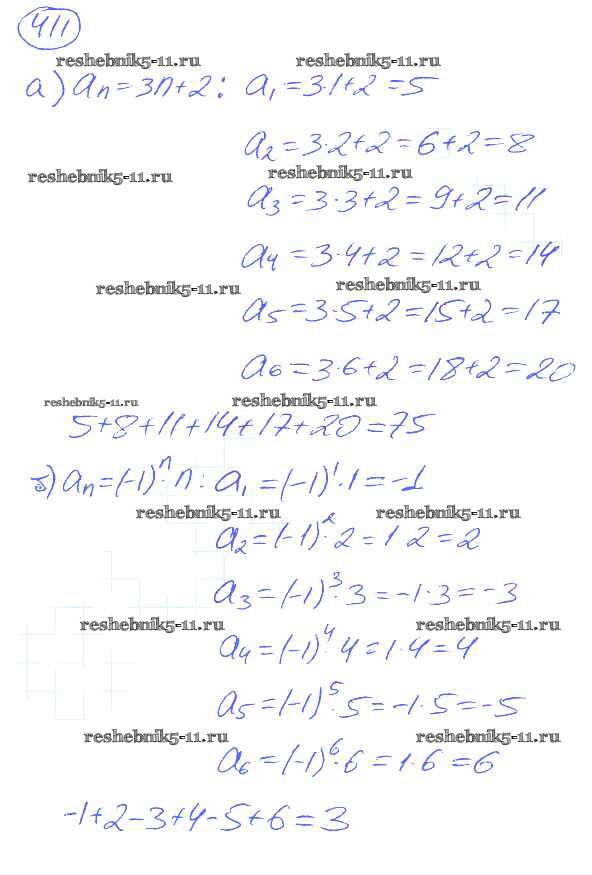 411
reshebnik5-11.ru reshebnik5-11.ru
а) aₙ=3n+2: a₁=3·1+2=5
a₂=3·2+2=6+2=8
reshebnik5-11.ru reshebnik5-11.ru
a₃=3·3+2=9+2=11
a₄=3·4+2=12+2=14
reshebnik5-11.ru reshebnik5-11.ru
a₅=3·5+2=15+2=17
a₆=3·6+2=18+2=20
reshebnik5-11.ru reshebnik5-11.ru
5+8+11+14+17+20=75
б) aₙ=(-1)ⁿ·n: a₁=(-1)¹·1=-1
reshebnik5-11.ru reshebnik5-11.ru
a₂=(-1)²·2=1·2=2
a₃=(-1)³·3=-1·3=-3
reshebnik5-11.ru reshebnik5-11.ru
a₄=(-1)⁴·4=1·4=4
a₅=(-1)⁵·5=-1·5=-5
reshebnik5-11.ru reshebnik5-11.ru
a₆=(-1)⁶·6=1·6=6
-1+2-3+4-5+6=3